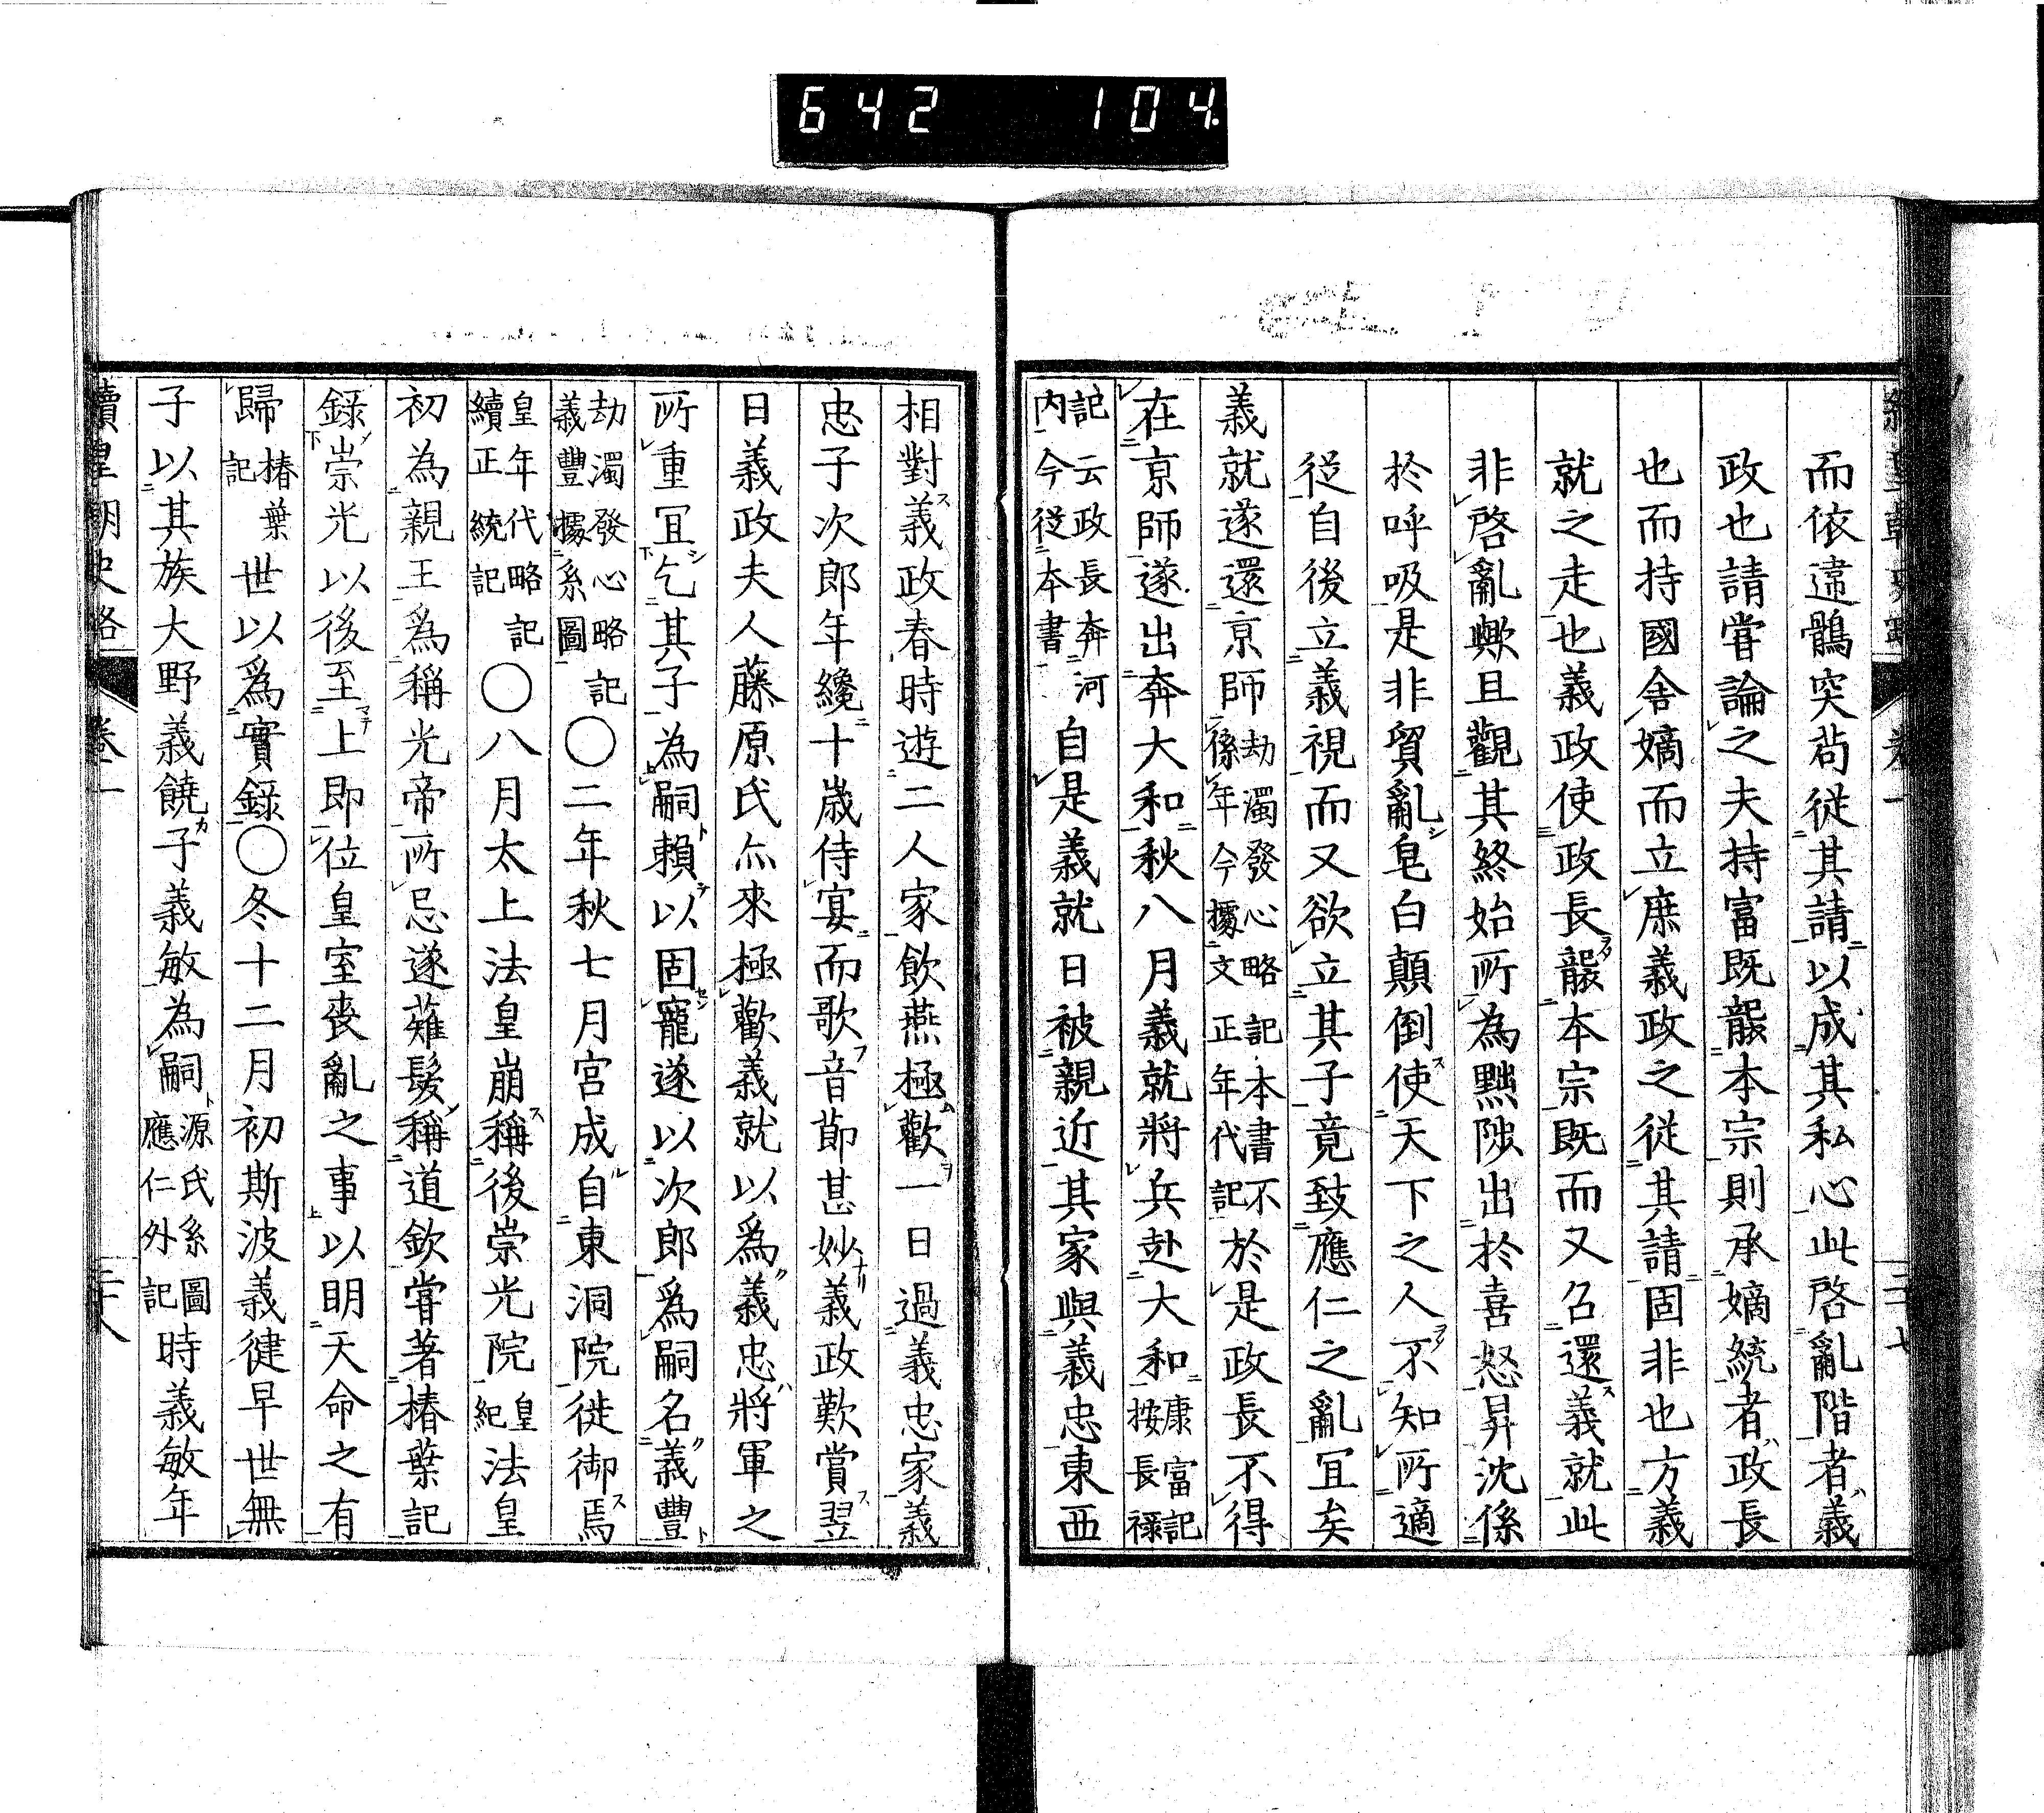 642 104
續皇朝史略 卷一 三十七
而依違鶻突苟從其請以成其私心此啓亂階者義
政也請甞論之夫持富既襲本宗則承嫡統者政長
也而持國舍嫡而立庶義政之從其請固非也方義
就之走也義政使政長襲本宗既而又召還義就此
非啓亂歟且觀其終始所為黜陟出於喜怒昇沈係
於呼吸是非貿亂皂白顛倒使天下之人不知所適
從自後立義視而又欲立其子竟致應仁之亂宜矣
義就遂還京師劫濁發心略記本書不係年今據文正年代記於是政長不得
在京師遂出奔大和秋八月義就將兵赴大和康富記按長祿
記云政長奔河内今從本書自是義就日被親近其家與義忠東西
相對義政春時遊二人家飲燕極歡一日過義忠家義
忠子次郎年纔十歲侍宴而歌音節甚妙義政歎賞翌
日義政夫人藤原氏亦來極歡義就以爲義忠將軍之
所重宜乞其子為嗣賴以固寵遂以次郎爲嗣名義豐
劫濁發心略記義豐據系圖〇二年秋七月宮成自東洞院徙御焉
皇年代略記續正統記〇八月太上法皇崩稱後崇光院皇紀法皇
初為親王爲稱光帝所忌遂薙髮稱道欽甞著椿葉記
錄崇光以後至上即位皇室喪亂之事以明天命之有
歸椿葉記世以爲實錄〇冬十二月初斯波義健早世無
子以其族大野義饒子義敏為嗣源氏系圖應仁外記時義敏年
續皇朝史略 卷一 三十八